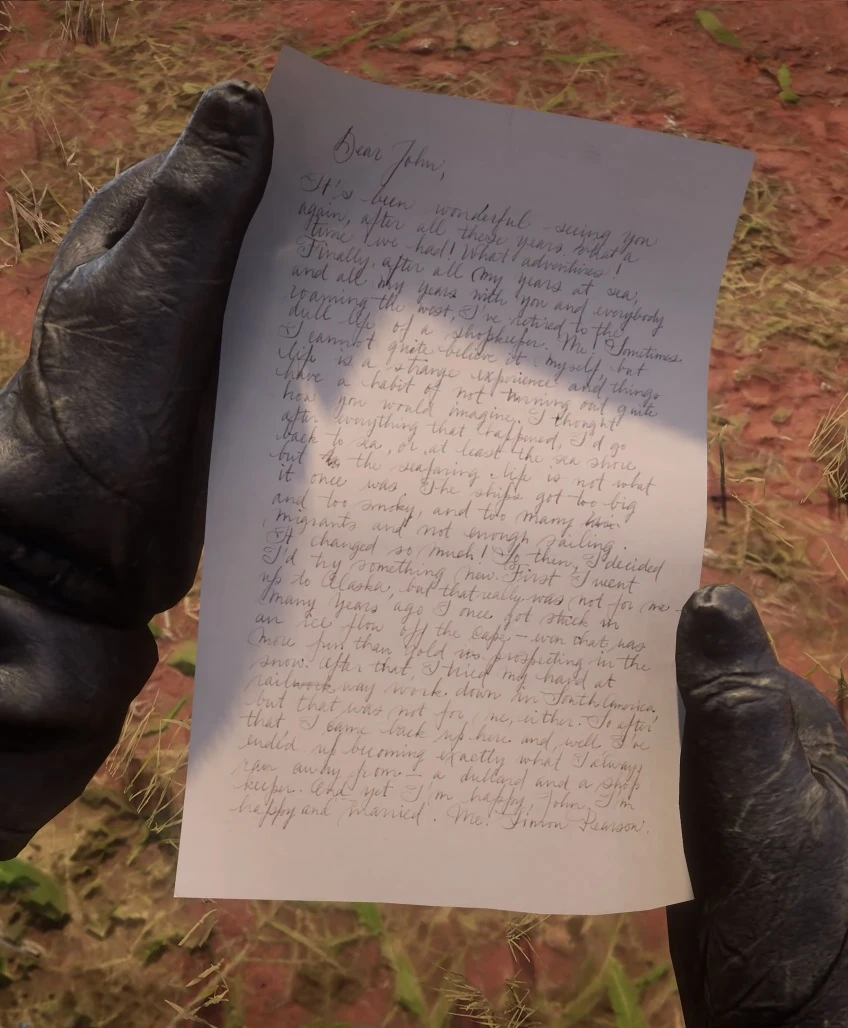 Dear John,
It's been wonderful seeing you
again, after all these years. What a
time we had! What adventures!
Finally, after all my years at sea,
and all my years with you and everybody
roaming the west, I've retired to the
dull life of a shopkeeper. Me! Sometimes
I cannot quite believe it myself, but
life is a strange experience and things
have a habit of not turning out quite
how you would imagine. I thought
after everything that happened, I'd go
back to sea, or at least the sea shore,
but the seafaring life is not what
it once was. The ships got too big
and too smoky, and too many
migrants and not enough sailing.
It changed so much! So then, I decided
I'd try something new. First I went
up to Alaska, but that really was not for me -
many years ago I once got stuck in
an ice flow off the Cape - even that was
more fun than gold prospecting in the
snow. After that, I tried my hand at
railway work down in South America,
but that was not for me, either. So after
that I came back up here and, well, I've
ended up becoming exactly what I always
ran away from - a dullard and a shop
keeper. And yet I'm happy, John, I'm
happy and married. Me! Simon Pearson.